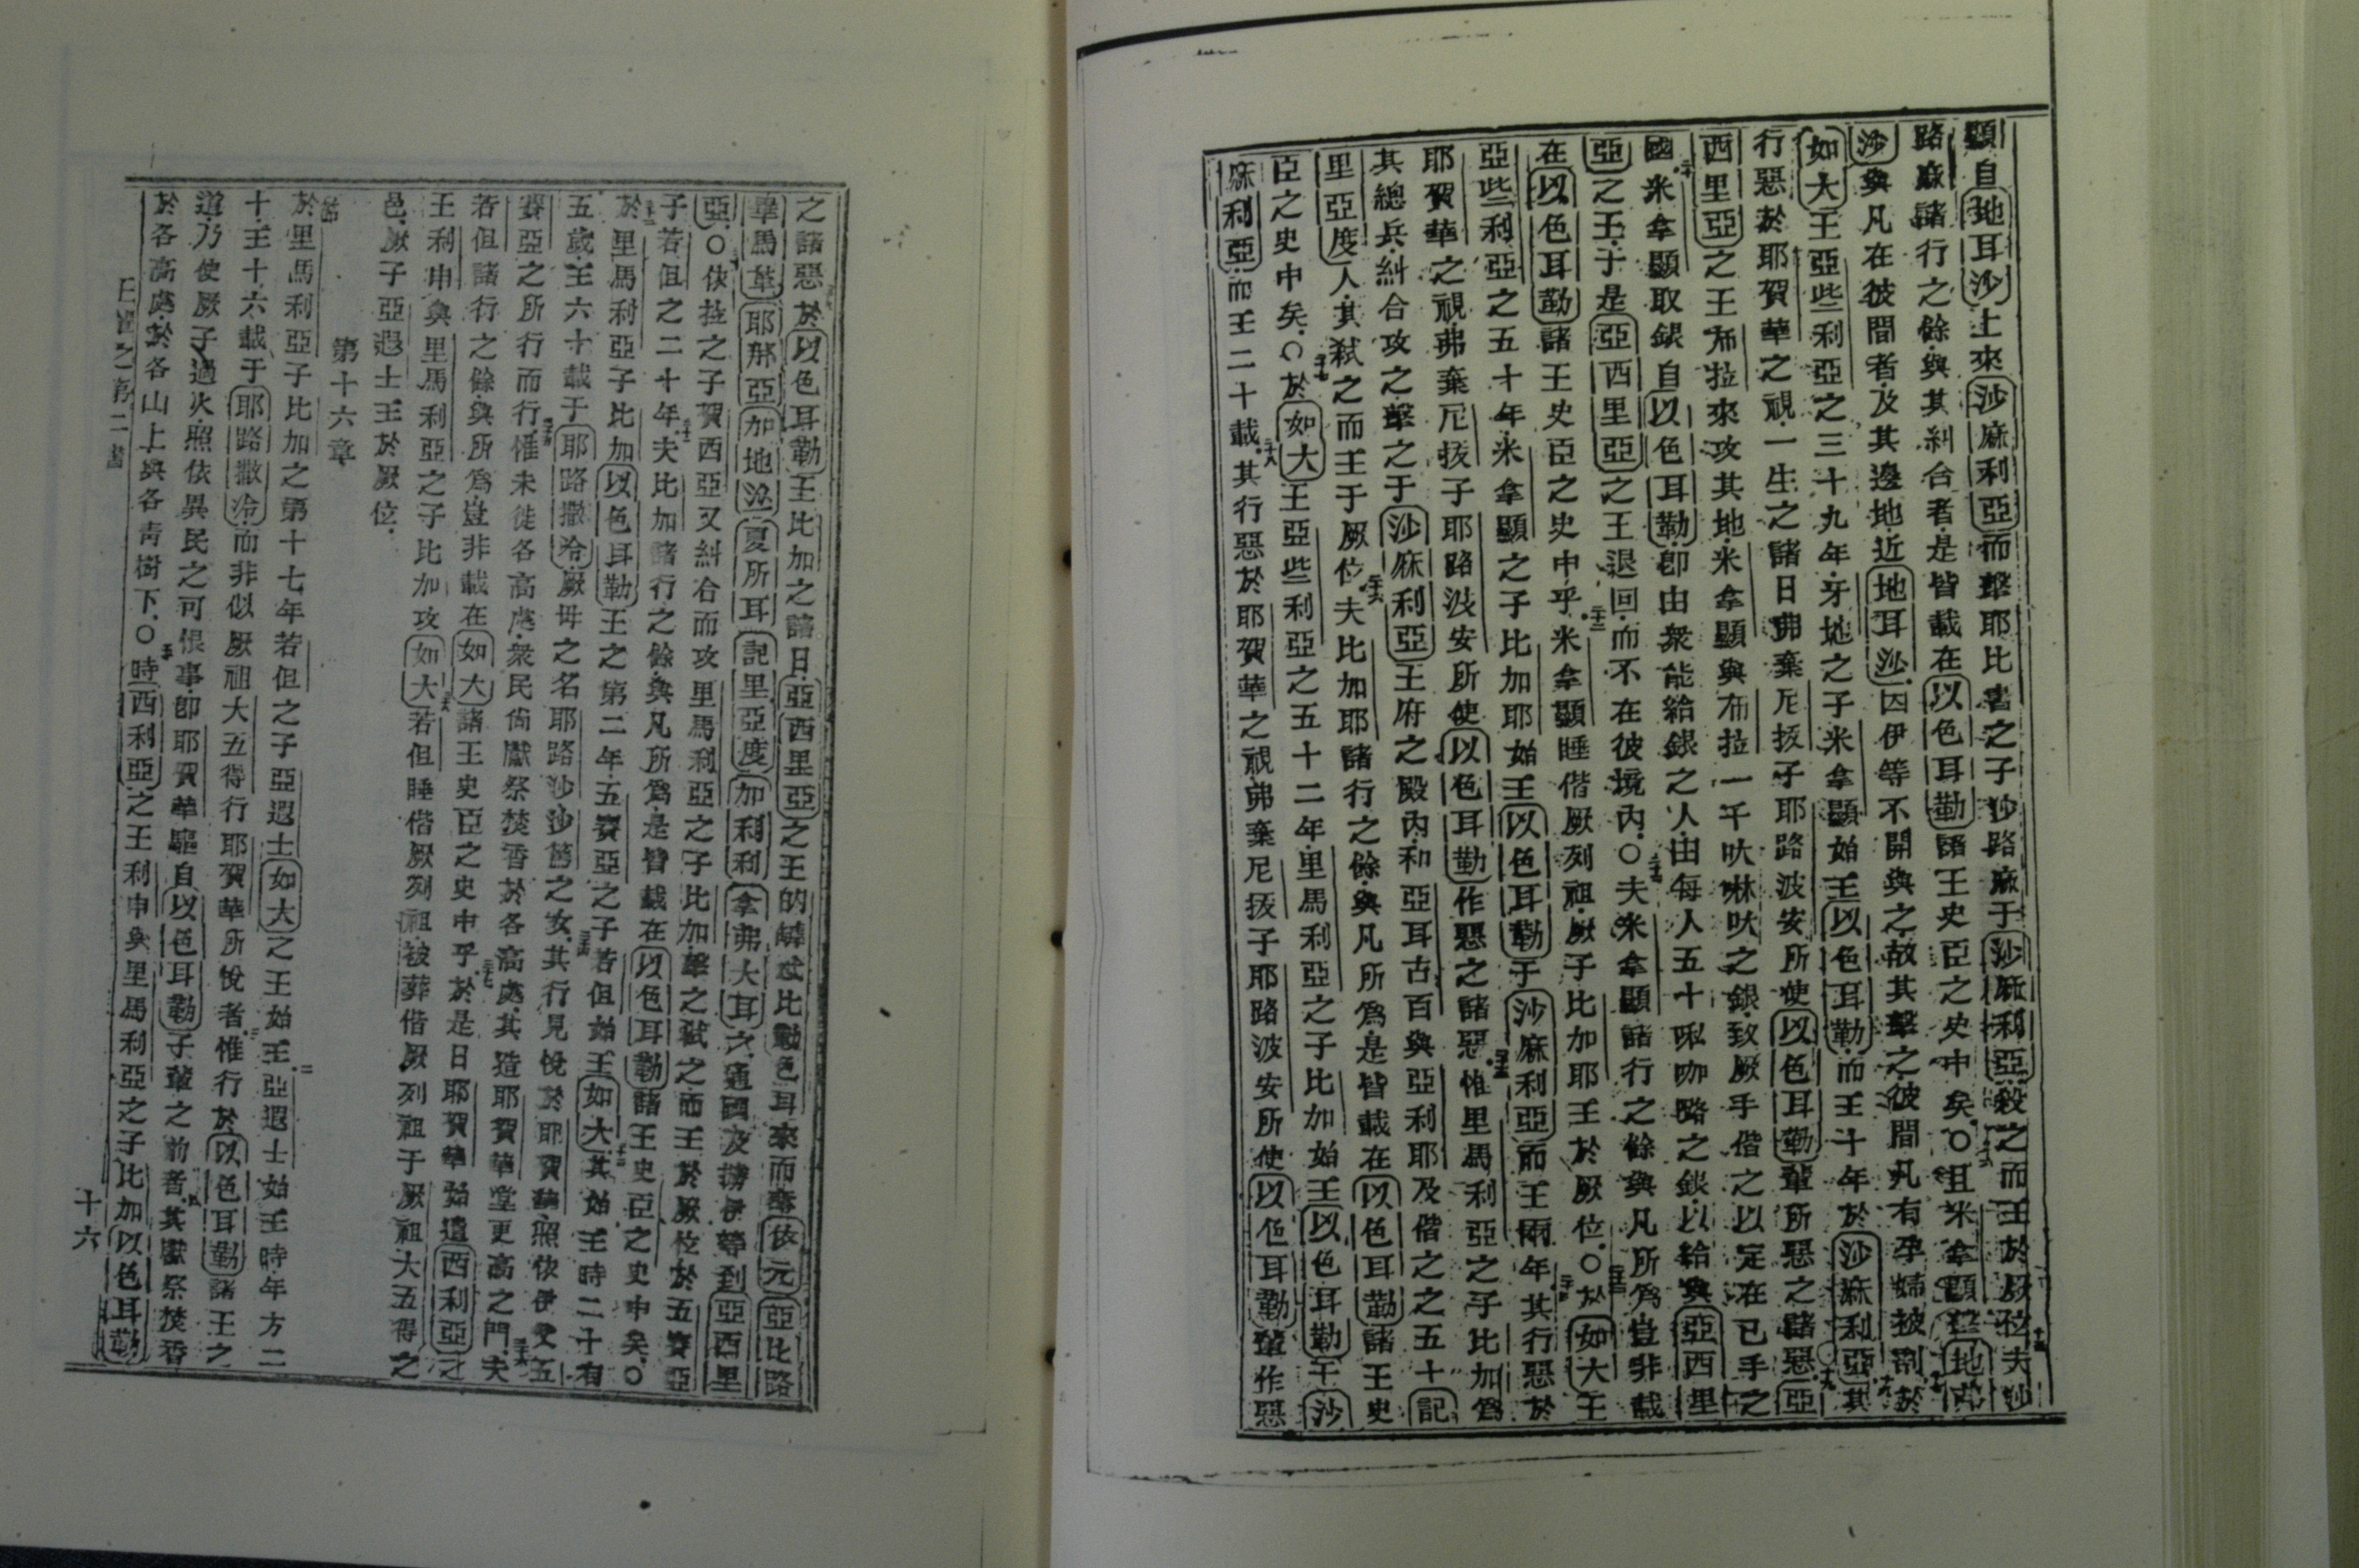 顯自地耳沙上來沙麻利亞而擊耶比書之子沙路麻于沙麻利亞殺之而王於厥位夫沙
路麻諸行之餘與其糾合者是皆載在以色耳勒諸王史臣之史中矣○且米拿顯地
沙與凡在彼間者及其邊地近地耳沙因伊等不開與之故其擊之彼間凡有孕婦被割於
如大王亞些利亞之三十九年牙地之子米拿顯始王以色耳勒而王十年於沙麻利亞其
行惡於耶賀華之視一生之諸日弗棄尼抜子耶路波安所使以色耳勒輩所惡之諸惡亞
西里亞之王布拉來攻其地米拿顯與布拉一千吠啉吠之銀致厥手偕之以定在已手之
國米拿顯取銀自以色耳勒卽由衆能給銀之人由每人五十㖔咖略之銀以給與亞西里
亞之王于是亞西里亞之王退回而不在彼境內○夫米拿顯諸行之餘與凡所爲豈非載
在以色耳勒諸王史臣之史中乎米拿顯睡偕厥列祖厥子比加耶王於厥位○於如大王
亞些利亞之五十年米拿顯之子比加耶始王以色耳勒于沙麻利亞而王兩年其行惡於
耶賀華之視弗棄尼抜子耶路波安所使以色耳勒作惡之諸惡惟里馬利亞之子比加爲
其總兵糾合攻之擊之于沙麻利亞王府之殿內和亞耳古百與亞利耶及偕之之五十記
里亞度人其弒之而王于厥位夫比加耶諸行之餘與凡所爲是皆載在以色耳勒諸王史
臣之史中矣○於如大王亞些利亞之五十二年里馬利亞之子比加始王以色耳勒于沙
麻利亞而王二十載其行惡於耶賀華之視弗棄尼抜子耶路波安所使以色耳勒輩作惡
之諸惡於以色耳勒王比加之諸日亞西里亞之王的比勒色耳來而奪依元亞比路
畢馬革耶那亞加地沙夏所耳記里亞度加利利拿弗大耳之通國及擄伊等到亞西里
亞○依拉之子賀西亞又糾合而攻里馬利亞之子比加擊之弒之而王於厥位於五賽亞
子若但之二十年夫比加諸行之餘與凡所爲是皆載在以色耳勒諸王史臣之史中矣○
於里馬利亞子比加以色耳勒王之第二年五賽亞之子若但始王如大其始王時二十有
五歲王六十載于耶路撒冷厥母之名耶路沙沙篤之女其行見悅於耶賀華照依伊父五
賽亞之所行而行惟未徙各高處衆民尙獻祭焚香於各高處其造耶賀華堂更高之門夫
若但諸行之餘與所爲豈非載在如大諸王史臣之史中乎於是日耶賀華始遣西利亞之
王利申與里馬利亞之子比加攻如大若但睡偕厥列祖被葬偕厥列祖于厥祖大五得之
邑厥子亞遐士王於厥位
第十六章
於里馬利亞子比加之第十七年若但之子亞遐士如大之王始王亞遐士始王時年方二
十王十六載于耶路撒冷而非似厥祖大五得行耶賀華所悅者惟行於以色耳勒諸王之
道乃使厥子過火照依異民之可恨事卽耶賀華驅自以色耳勒子輩之前者其獻祭焚香
於各高處於各山上與各靑樹下○時西利亞之王利申與里馬利亞之子比加以色耳勒
王書之第二書 十六